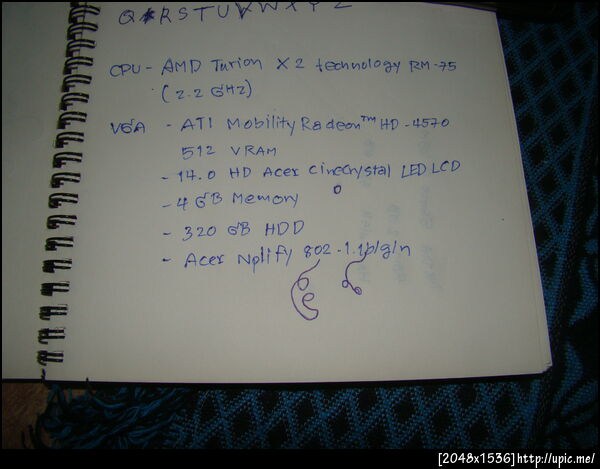 Q R S T U V W X Y Z
CPU - AMD Turion X2 technology RM-75
(2.2 GHz)
VGA - ATI Mobility Radeon™ HD - 4570
512 VRAM
- 14.0 HD Acer CineCrystal LED LCD
- 4 GB Memory
- 320 GB HDD
- Acer Nplify 802.1.1b/g/n
[2048x1536]http://upic.me/